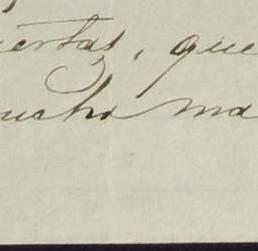 iertas, que
ucho ma